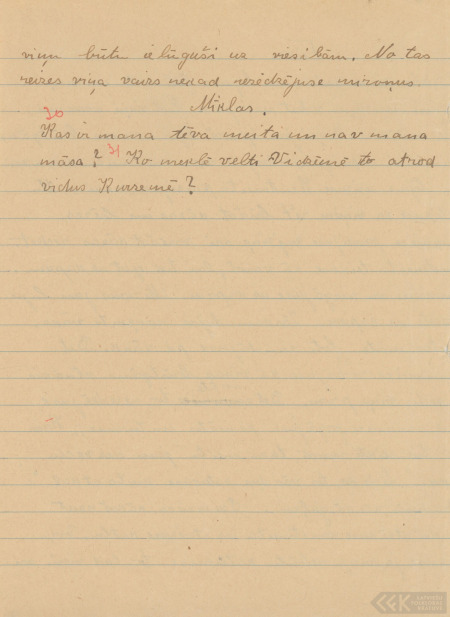 viņu būtu ielūguši uz viesībām. No tas
reizes viņa vairs nekad neredzējuse mironus.
Mīklas.
30
Kas ir mana tēva meita un nav mana
māsa? 31 Ko meklē velti Vidzēmē to atrod
vidus Kurzemē?